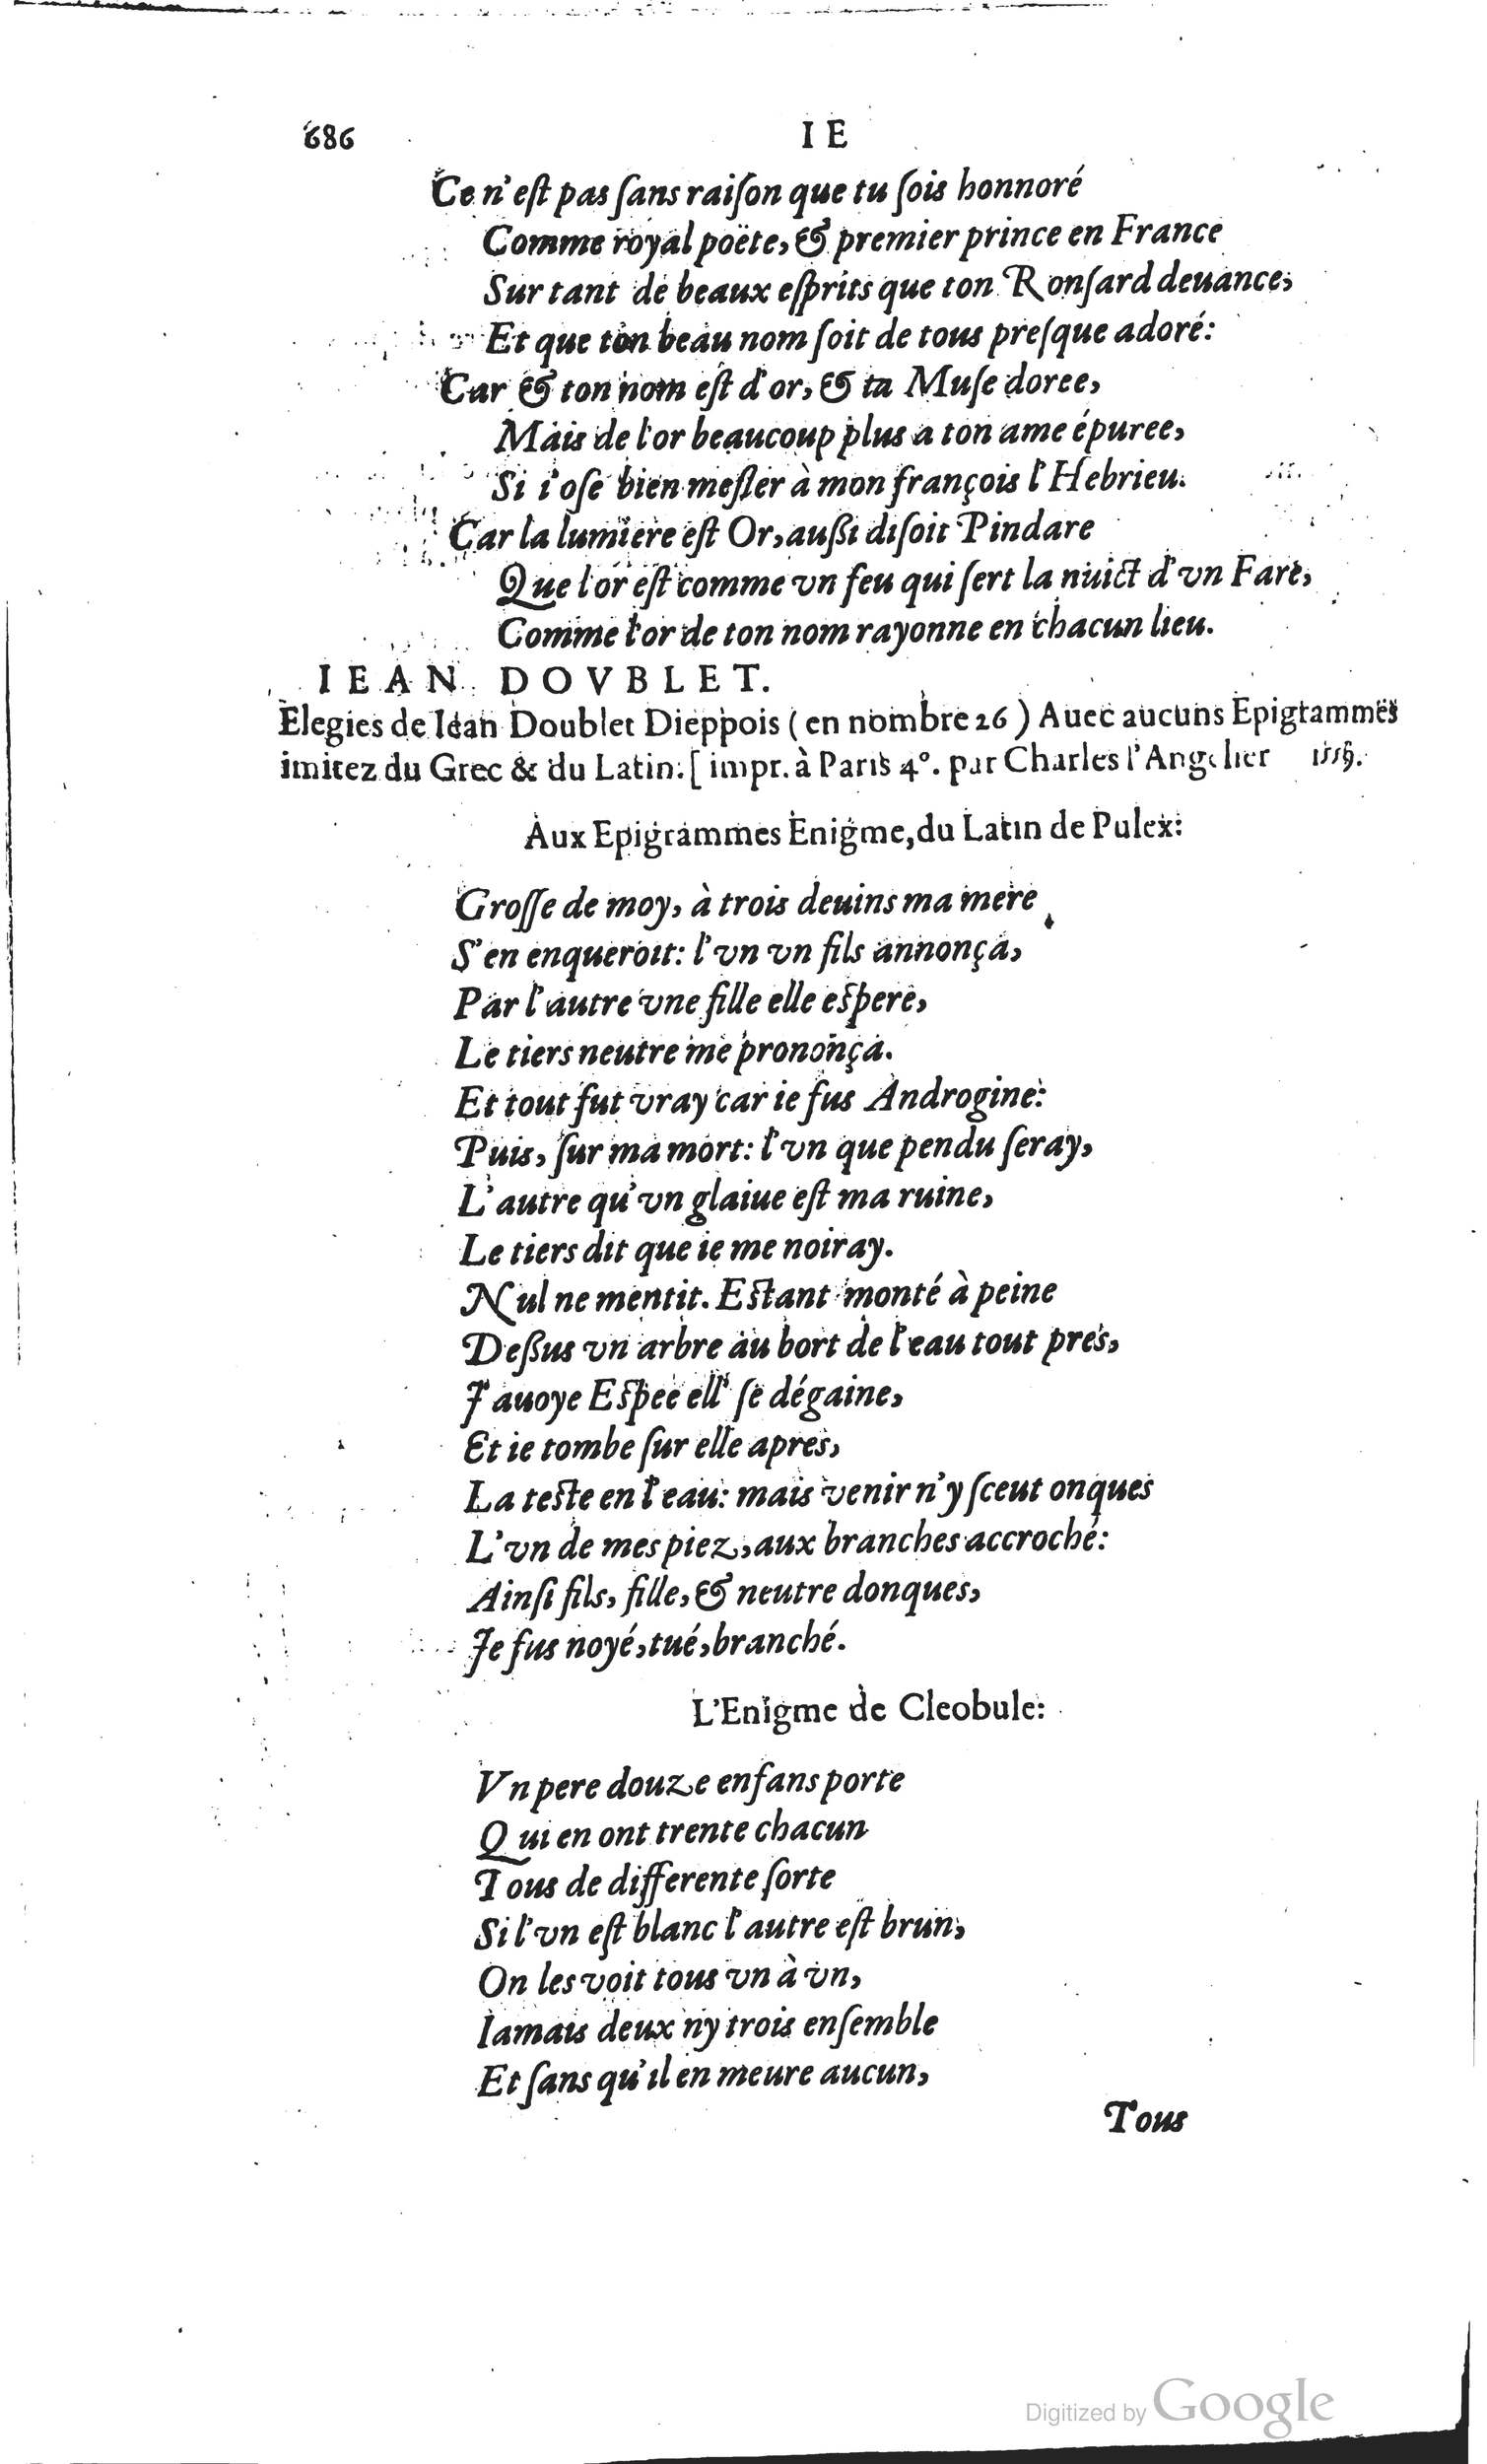 686 IE
Ce n'eſt pas ſans raiſon que tu ſois honnoré
Comme royal poëte, & premier prince en France
Sur tant de beaux eſprits que ton Ronſard deuance,
Et que ton beau nom ſoit de tous preſque adoré:
Car & ton nom eſt d'or, & ta Muſe doree,
Mais de l'or beaucoup plus a ton ame épuree,
Si i'oſe bien meſler à mon françois l'Hebrieu.
Car la lumiere eſt Or, außi diſoit Pindare
Que l'or eſt comme vn feu qui ſert la nuict d'vn Fare,
Comme l'or de ton nom rayonne en chacun lieu.
IEAN DOVBLET.
Elegies de Iean Doublet Dieppois (en nombre 26) Auec aucuns Epigrammes
imitez du Grec & du Latin. [impr. à Paris 4°. par Charles l'Angelier
Aux Epigrammes Enigme, du Latin de Pulex:
Groſſe de moy, à trois deuins ma mere
S'en enqueroit: l'vn vn fils annonça,
Par l'autre vne fille elle eſpere,
Le tiers neutre me prononça.
Et tout fut vray car ie fus Androgine:
Puis, ſur ma mort: l'vn que pendu ſeray,
L'autre qu'vn glaiue eſt ma ruine,
Le tiers dit que ie me noiray.
Nul ne mentit. Eſtant monté à peine
Deßus vn arbre au bort de l'eau tout pres,
J'auoye Eſpee ell' ſe dégaine,
Et ie tombe ſur elle apres,
La teſte en l'eau: mais venir n'y ſceut onques
L'vn de mes piez, aux branches accroché:
Ainſi fils, fille, & neutre donques,
Je fus noyé, tué, branché.
L'Enigme de Cleobule:
Vn pere douze enfans porte
Qui en ont trente chacun
Tous de differente ſorte
Si l'vn eſt blanc l'autre eſt brun,
On les voit tous vn à vn,
Iamais deux ny trois enſemble
Et ſans qu'il en meure aucun,
Tous
Digitized by Google